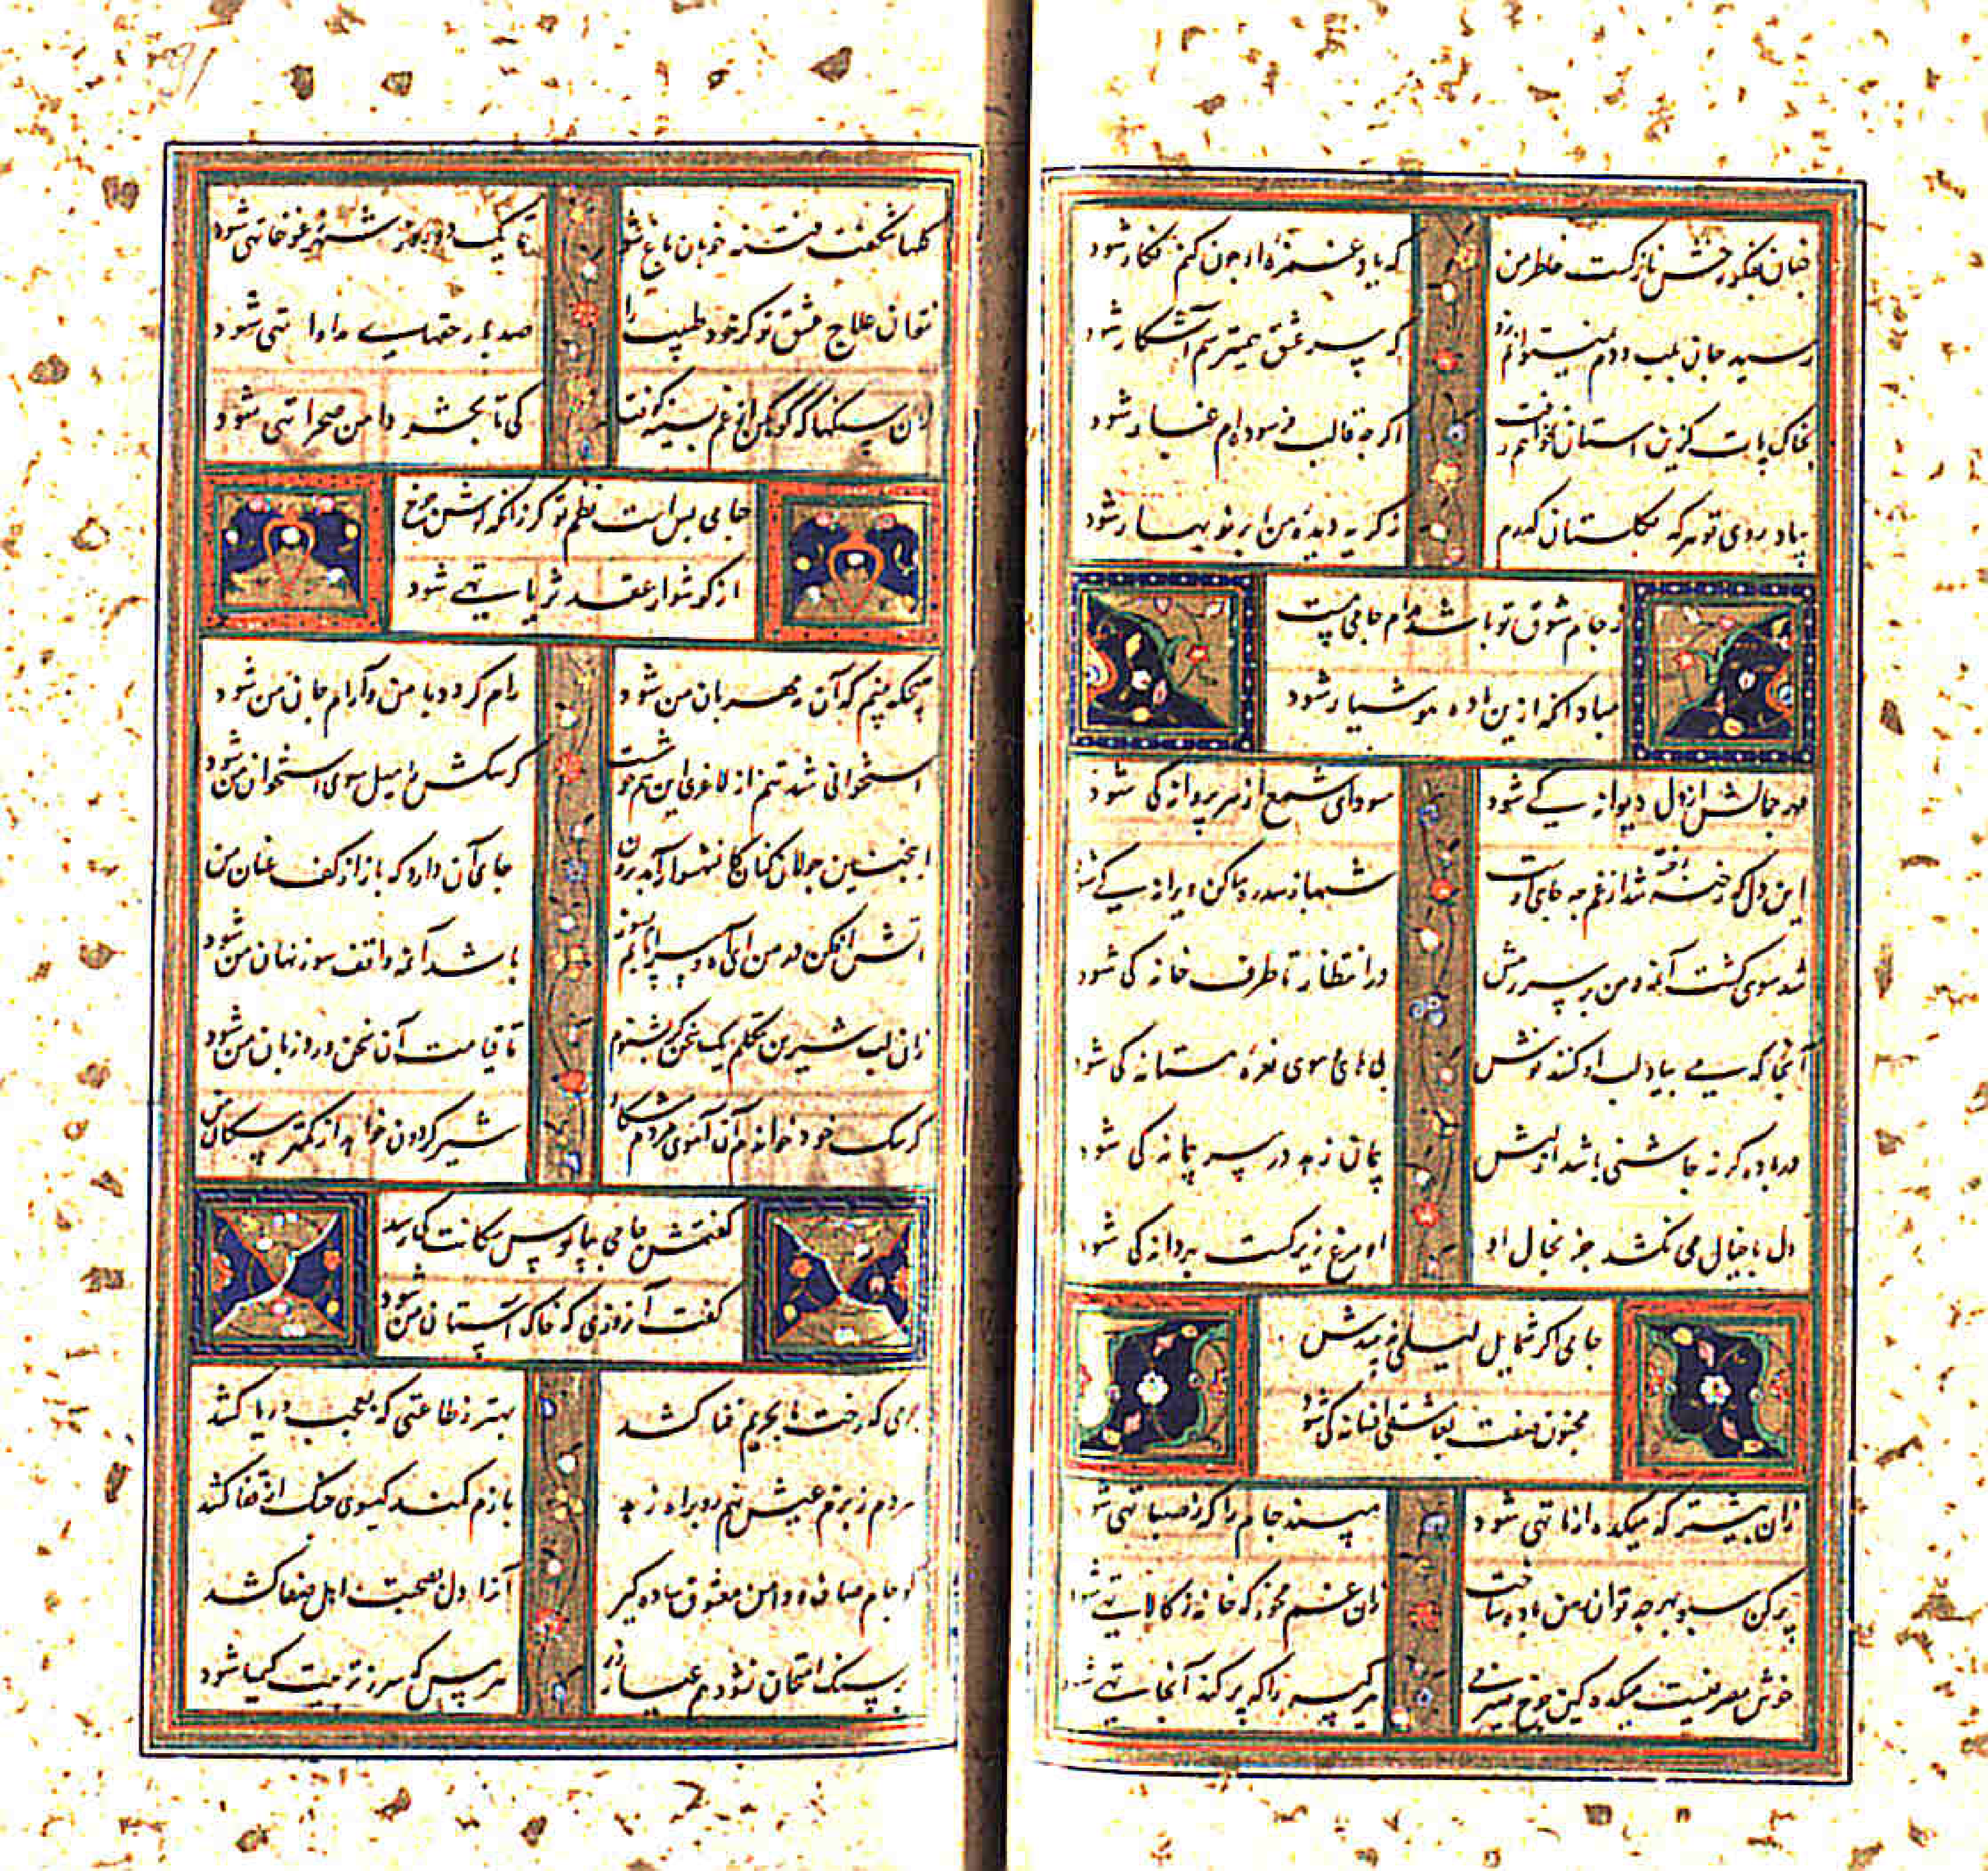 چنان بفکور خش نازکست خاطر من
که یاد غمزهٔ او چون کنم فکار شود
رسید جان بلب و دم نمیتوانم زد
که سر عشق همیترسم آشکار شود
بخاک پات کزین استان نخواهم رفت
اکرچه قالب فرسوده‌ام غبار شود
بیاد روی تو هرکه بکلستان کذرم
ز کریه دیدهٔ من ابر نوبهار شود
ز جام شوق تو باشد مدام جامی مست
مباد آنکه ازین باده هوشیار شود
مهر جمالش از دل دیوانه کی شود
سودای شمع از سر پروانه کی شود
این دل که رخنه رخنه شد از غم چه جای اوست
شهباز سدره ساکن ویرانه کی شود
شد سوی کشت آن مه و من بر سر رهش
در انتظار تا طرف خانه کی شود
آنجا که می بیاد لب او کنند نوش
بی های هوی نعرهٔ مستانه کی شود
در باده کر نه چاشنی باشد از لبش
پیمان زهد در سر پیمانه کی شود
دل با خیال می نکشد جز بخال او
او مرغ زیرکست بهر دانه کی شود
جامی اکر شمایل لیلی نه بیندش
مجنون صفت بعاشقی افسانه کی شود
زان پیشتر که میکده از ما تهی شود
مپسند جام را که ز صهبا تهی شود
پر کن سبو بهر چه توان رهن باده ساخت
زان غم مخور که خانه ز کالا تهی شود
خوش مصرفیست میکده کین چرخ صیرفی
هر کیسه را که پر کند آنجا تهی شود
کلها شکفت فتنه خوبان باغ شو
تا یک دو روز شهر ز غوغا تهی شود
نتوان علاج عشق تو کر خود طبیب را
صد بار حقهای مداوا تهی شود
زان سنکها که کوهکن از غم بسینه کوفت
کی تا بحشر دامن صحرا تهی شود
جامی بس است نظم تو کر زانکه کوش چرخ
از کوشوار عقد ثریا تهی شود
میچکه بینم که آن مه مهربان من شود
رام کردد با من و آرام جان من شود
استخوانی شد تنم از لاغری این هم خوشست
کر سکش را میل سوی استخوان من شود
اینچنین جولان کنان کان شهسوار آمد برون
جای آن دارد که باز از کف عنان من شود
آتش افکن در من ای آه و سراپایم بسوز
باشد آن مه واقف سوز نهان من شود
زان لب شیرین تکلم یک سخن کر بشنوم
تا قیامت آن سخن ورد زبان من شود
کر سک خود خواندم آن آهوی مردم شکار
شیر کردون خواهد از کمتر سکان من شود
کفتمش جامی بپابوس سکانت کی رسد
کفت آنروزی که خاک آستان من شود
جرمی که رخت ما بحریم فنا کشد
بهتر ز طاعتی که بعجب و ریا کشد
هر دم ز بزم عیش نهم رو براه زهد
بازم کمند کیسوی چنک از قفا کشد
کو جام صاف و دامن معشوق ساده کیر
آنرا که دل بصحبت اهل صفا کشد
بر سنک امتحان نشود هم عیار زر
هر مس که سر ز تربیت کیمیا کشد